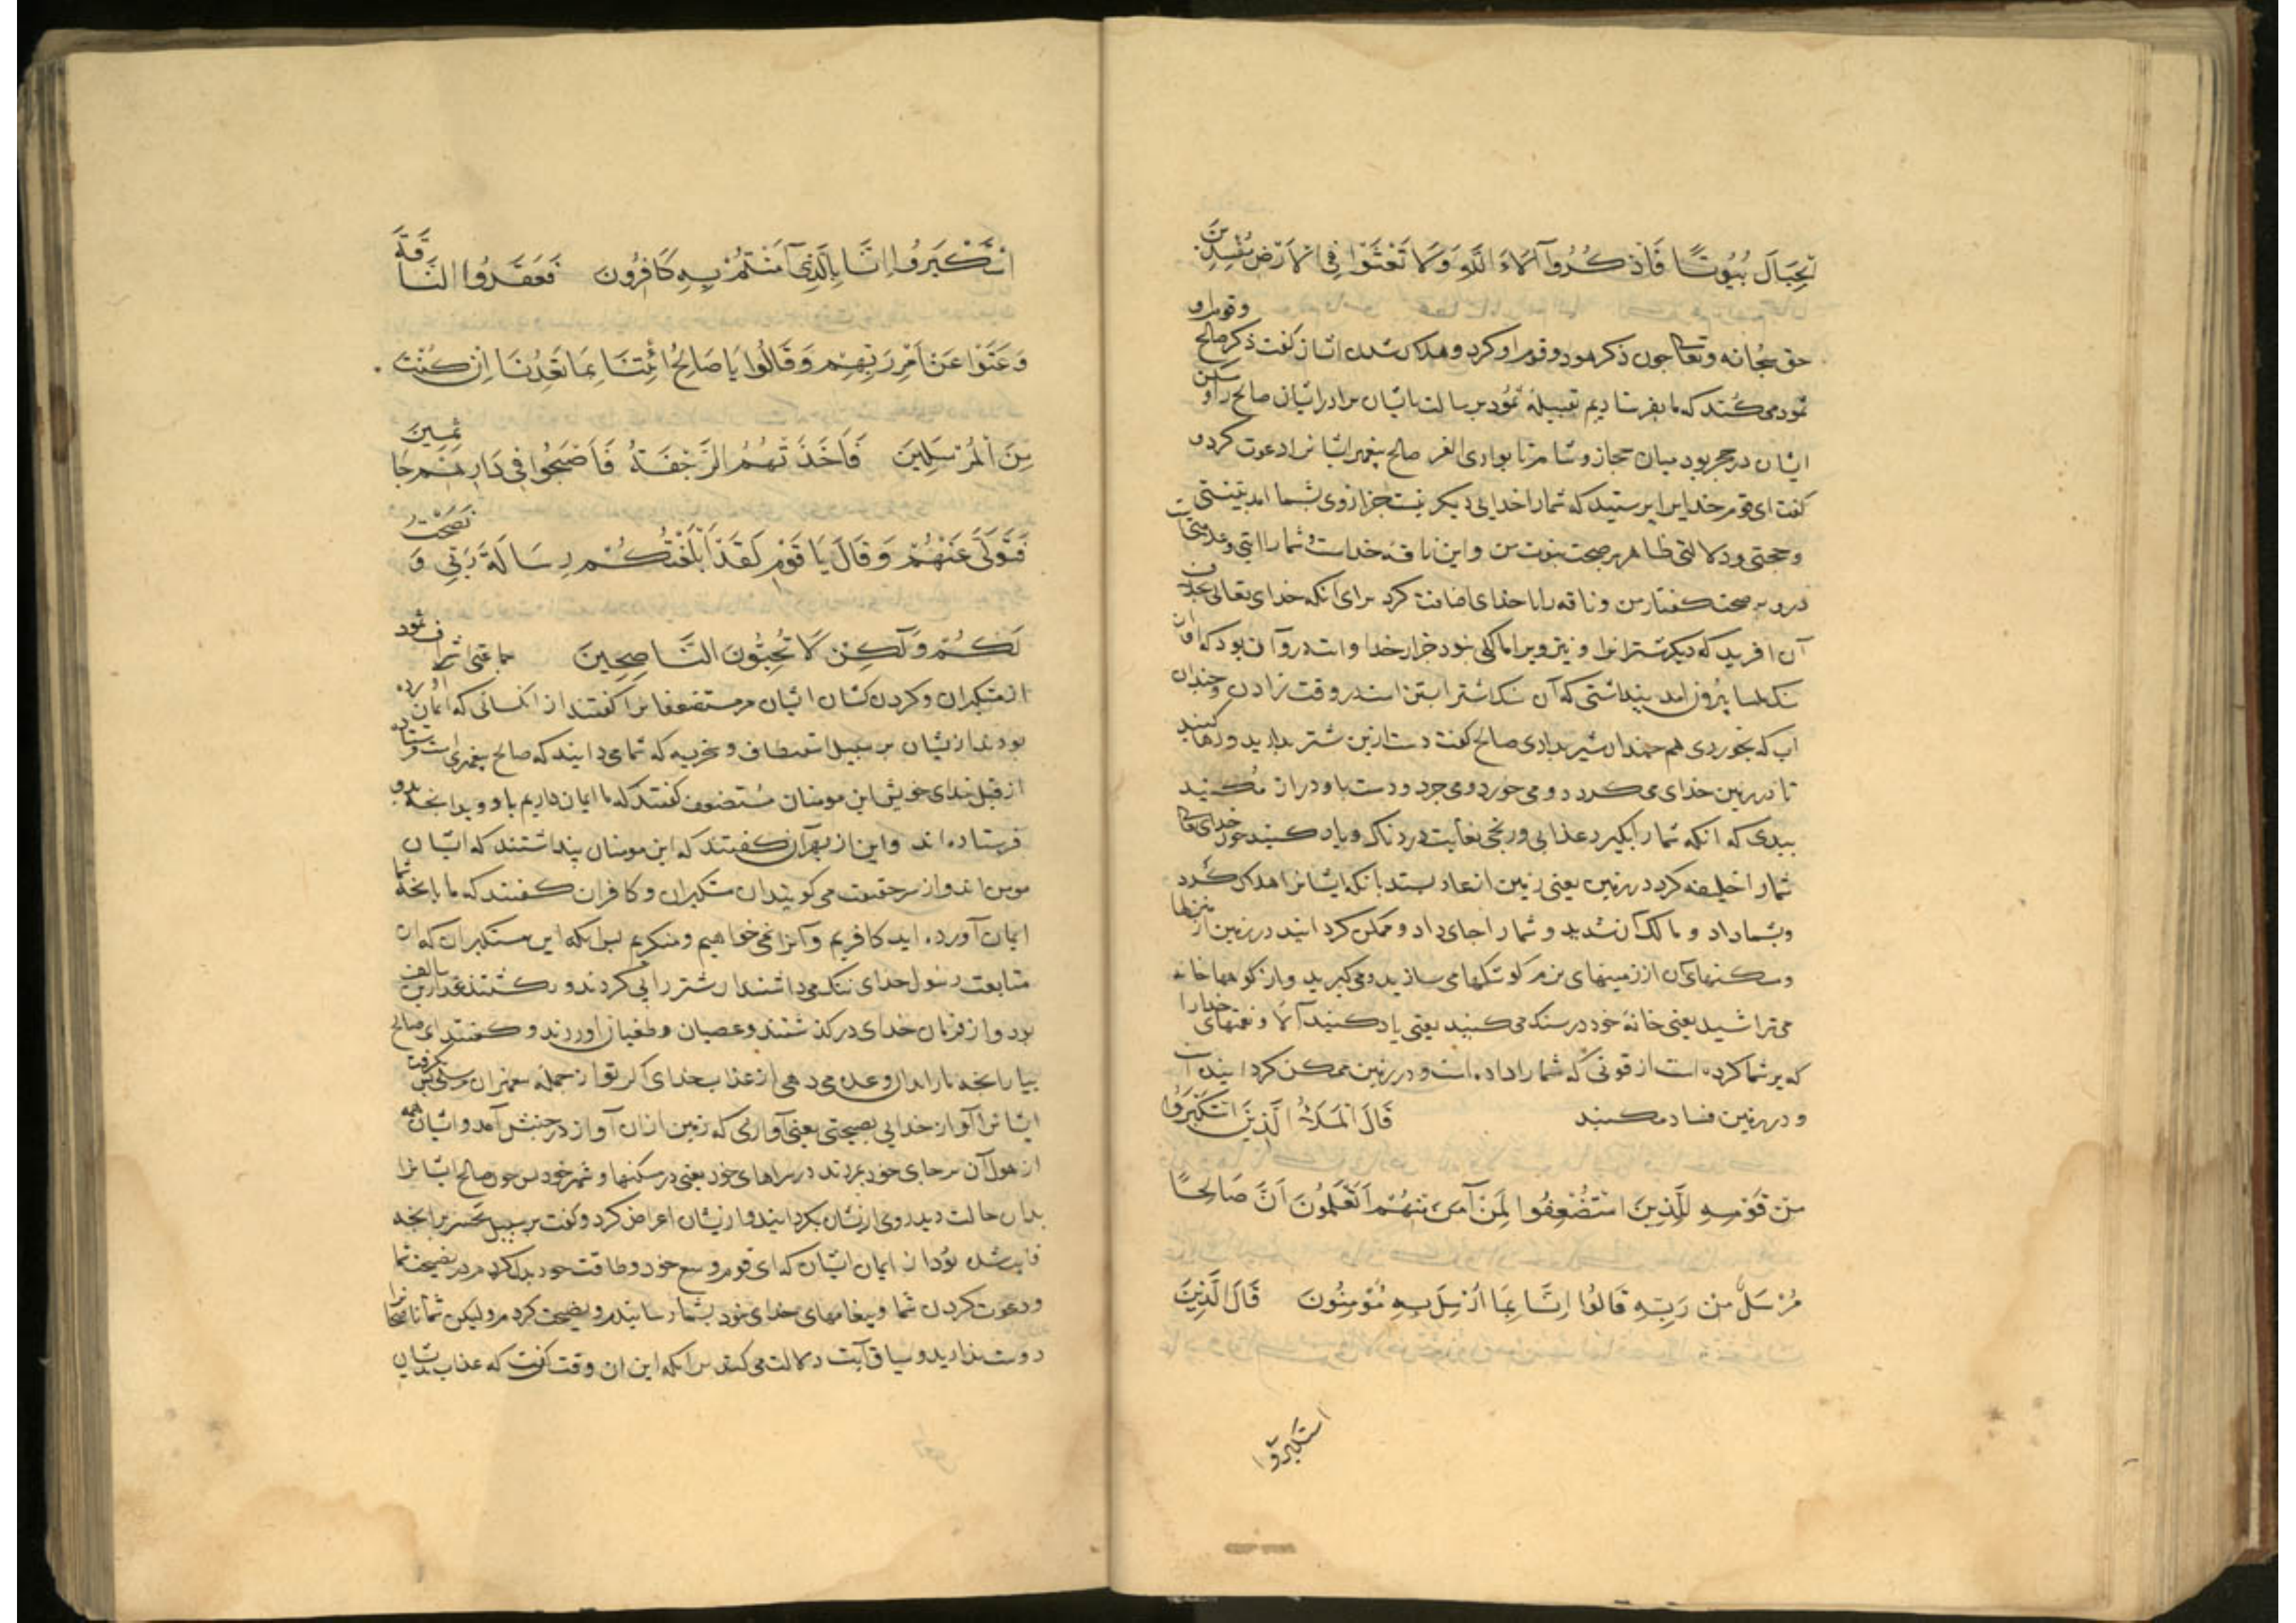 الجِبَالَ بُيُوتًا فَاذْكُرُوا آلَاءَ اللَّهِ وَلَا تَعْثَوْا فِي الْأَرْضِ مُفْسِدِينَ
حق سبحانه وتعالی چون ذکر هود و قوم او کرد و هلاک شدن ایشان گفت ذکر صالح و قوم او
ثمود می کند که ما بفرستادیم بقبیله ثمود برسالت بایشان برادر ایشان صالح را و
ایشان در حجر بود میان حجاز و شام تا بوادی القر صالح پیغمبر ایشانرا دعوت کرد و
گفت ای قوم خدایرا بپرستید که شمارا خدایی دیگر نیست جز از وی بشما امد بینتی
و حجتی و دلالتی ظاهر بر صحت نبوت من و این ناقه خداست شما را ایتی و
بر صحت گفتار من و ناقه را با خدای اضافت کرد برای انکه خدای تعالی
آن افرید که دیگر شترانرا و نیز ویرا مالکی نبود جز از خدا و
بیرون امد پنداشتی که آن سنگ شتر ابستن است در وقت زادن و چندان
اب که بخوردی هم چندان شیر بدادی صالح گفت دست ازین شتر بدارید و رها کنید
تا در زمین خدای می گردد و می خورد و می چرد و دست باو دراز مکنید
ببدی که انگه شما را بگیرد عذابی و رنجی بغایت دردناک و یاد کنید چون خدای تعالی
شمارا خلیفه کرد در زمین یعنی زمین از عاد بستد بانکه ایشانرا هلاک کرد
و بشما داد و مالک آن شدید و شما را جای داد و ممکن گردانید در زمین
و مسکنهای آن از زمینهای نرم کوشکها می سازید و می گیرید و از کوهها خانه
می تراشید یعنی خانه خود در سنگ می کنید یعنی یاد کنید آلا و نعمتهای خدایرا
که بر شما کرده است از قوتی که شما را داده است و در زمین ممکن گردانیده است
و در زمین فساد مکنید قَالَ الْمَلَأُ الَّذِينَ اسْتَكْبَرُوا
مِنْ قَوْمِهِ لِلَّذِينَ اسْتُضْعِفُوا لِمَنْ آمَنَ مِنْهُمْ أَتَعْلَمُونَ أَنَّ صَالِحًا
مُرْسَلٌ مِنْ رَبِّهِ قَالُوا إِنَّا بِمَا أُرْسِلَ بِهِ مُؤْمِنُونَ قَالَ الَّذِينَ
استکبروا
اسْتَكْبَرُوا إِنَّا بِالَّذِي آمَنْتُمْ بِهِ كَافِرُونَ فَعَقَرُوا النَّاقَةَ
وَعَتَوْا عَنْ أَمْرِ رَبِّهِمْ وَقَالُوا يَا صَالِحُ ائْتِنَا بِمَا تَعِدُنَا إِنْ كُنْتَ
مِنَ الْمُرْسَلِينَ فَأَخَذَتْهُمُ الرَّجْفَةُ فَأَصْبَحُوا فِي دَارِهِمْ جَاثِمِينَ
فَتَوَلَّى عَنْهُمْ وَقَالَ يَا قَوْمِ لَقَدْ أَبْلَغْتُكُمْ رِسَالَةَ رَبِّي وَنَصَحْتُ
لَكُمْ وَلَكِنْ لَا تُحِبُّونَ النَّاصِحِينَ جماعتی اشراف ثمود
از متکبران و گردن کشان ایشان مر مستضعفانرا گفتند از انکسانی که ایمان آورده
بودند ازیشان بر سبیل استعطاف و سخریه که شما می دانید که صالح پیغمبر است
از قبل خدای خویش این مومنان مستضعف گفتند که ما ایمان داریم باو و بدانچه بدو
فرستاده اند و این از بهر آن گفتند که این مومنان پنداشتند که ایشان
مومن اند و از سر حقیقت می گویند ان متکبران و کافران گفتند که ما بانچه شما
ایمان آورده اید کافریم و آنرا نمی خواهیم و منکریم پس انکه این مستکبران که از
متابعت رسول خدای ننگ می داشتند ان شتر را پی کردند و بکشتند
بود و از فرمان خدای درگذشتند و عصیان و طغیان اوردند و گفتند ای صالح
بیار انچه ما را بدان وعده می دهی از عذاب خدای اگر تو از جمله پیغمبران مرسلی پس بگرفت
ایشانرا آواز خدایی بصیحتی یعنی آوازی که زمین ازان آواز در جنبش آمد و ایشان همه
از هول آن بر جای خود بمردند در سراهای خود یعنی در مسکنها و شهر خود پس چون صالح ایشانرا
بدان حالت دید روی ازیشان بگردانید و ازیشان اعراض کرد و گفت بر سبیل تحسر برانچه
فایت شده بود از ایمان ایشان که ای قوم وسع خود و طاقت خود بذل کردم در نصیحت شما
و دعوت کردن شما و پیغامهای خدای خود بشما رسانیدم و نصیحت کردم ولیکن شما ناصحانرا
دوست ندارید و سیاق آیت دلالت می کند برانکه این ان وقت گفت که عذاب بدیشان